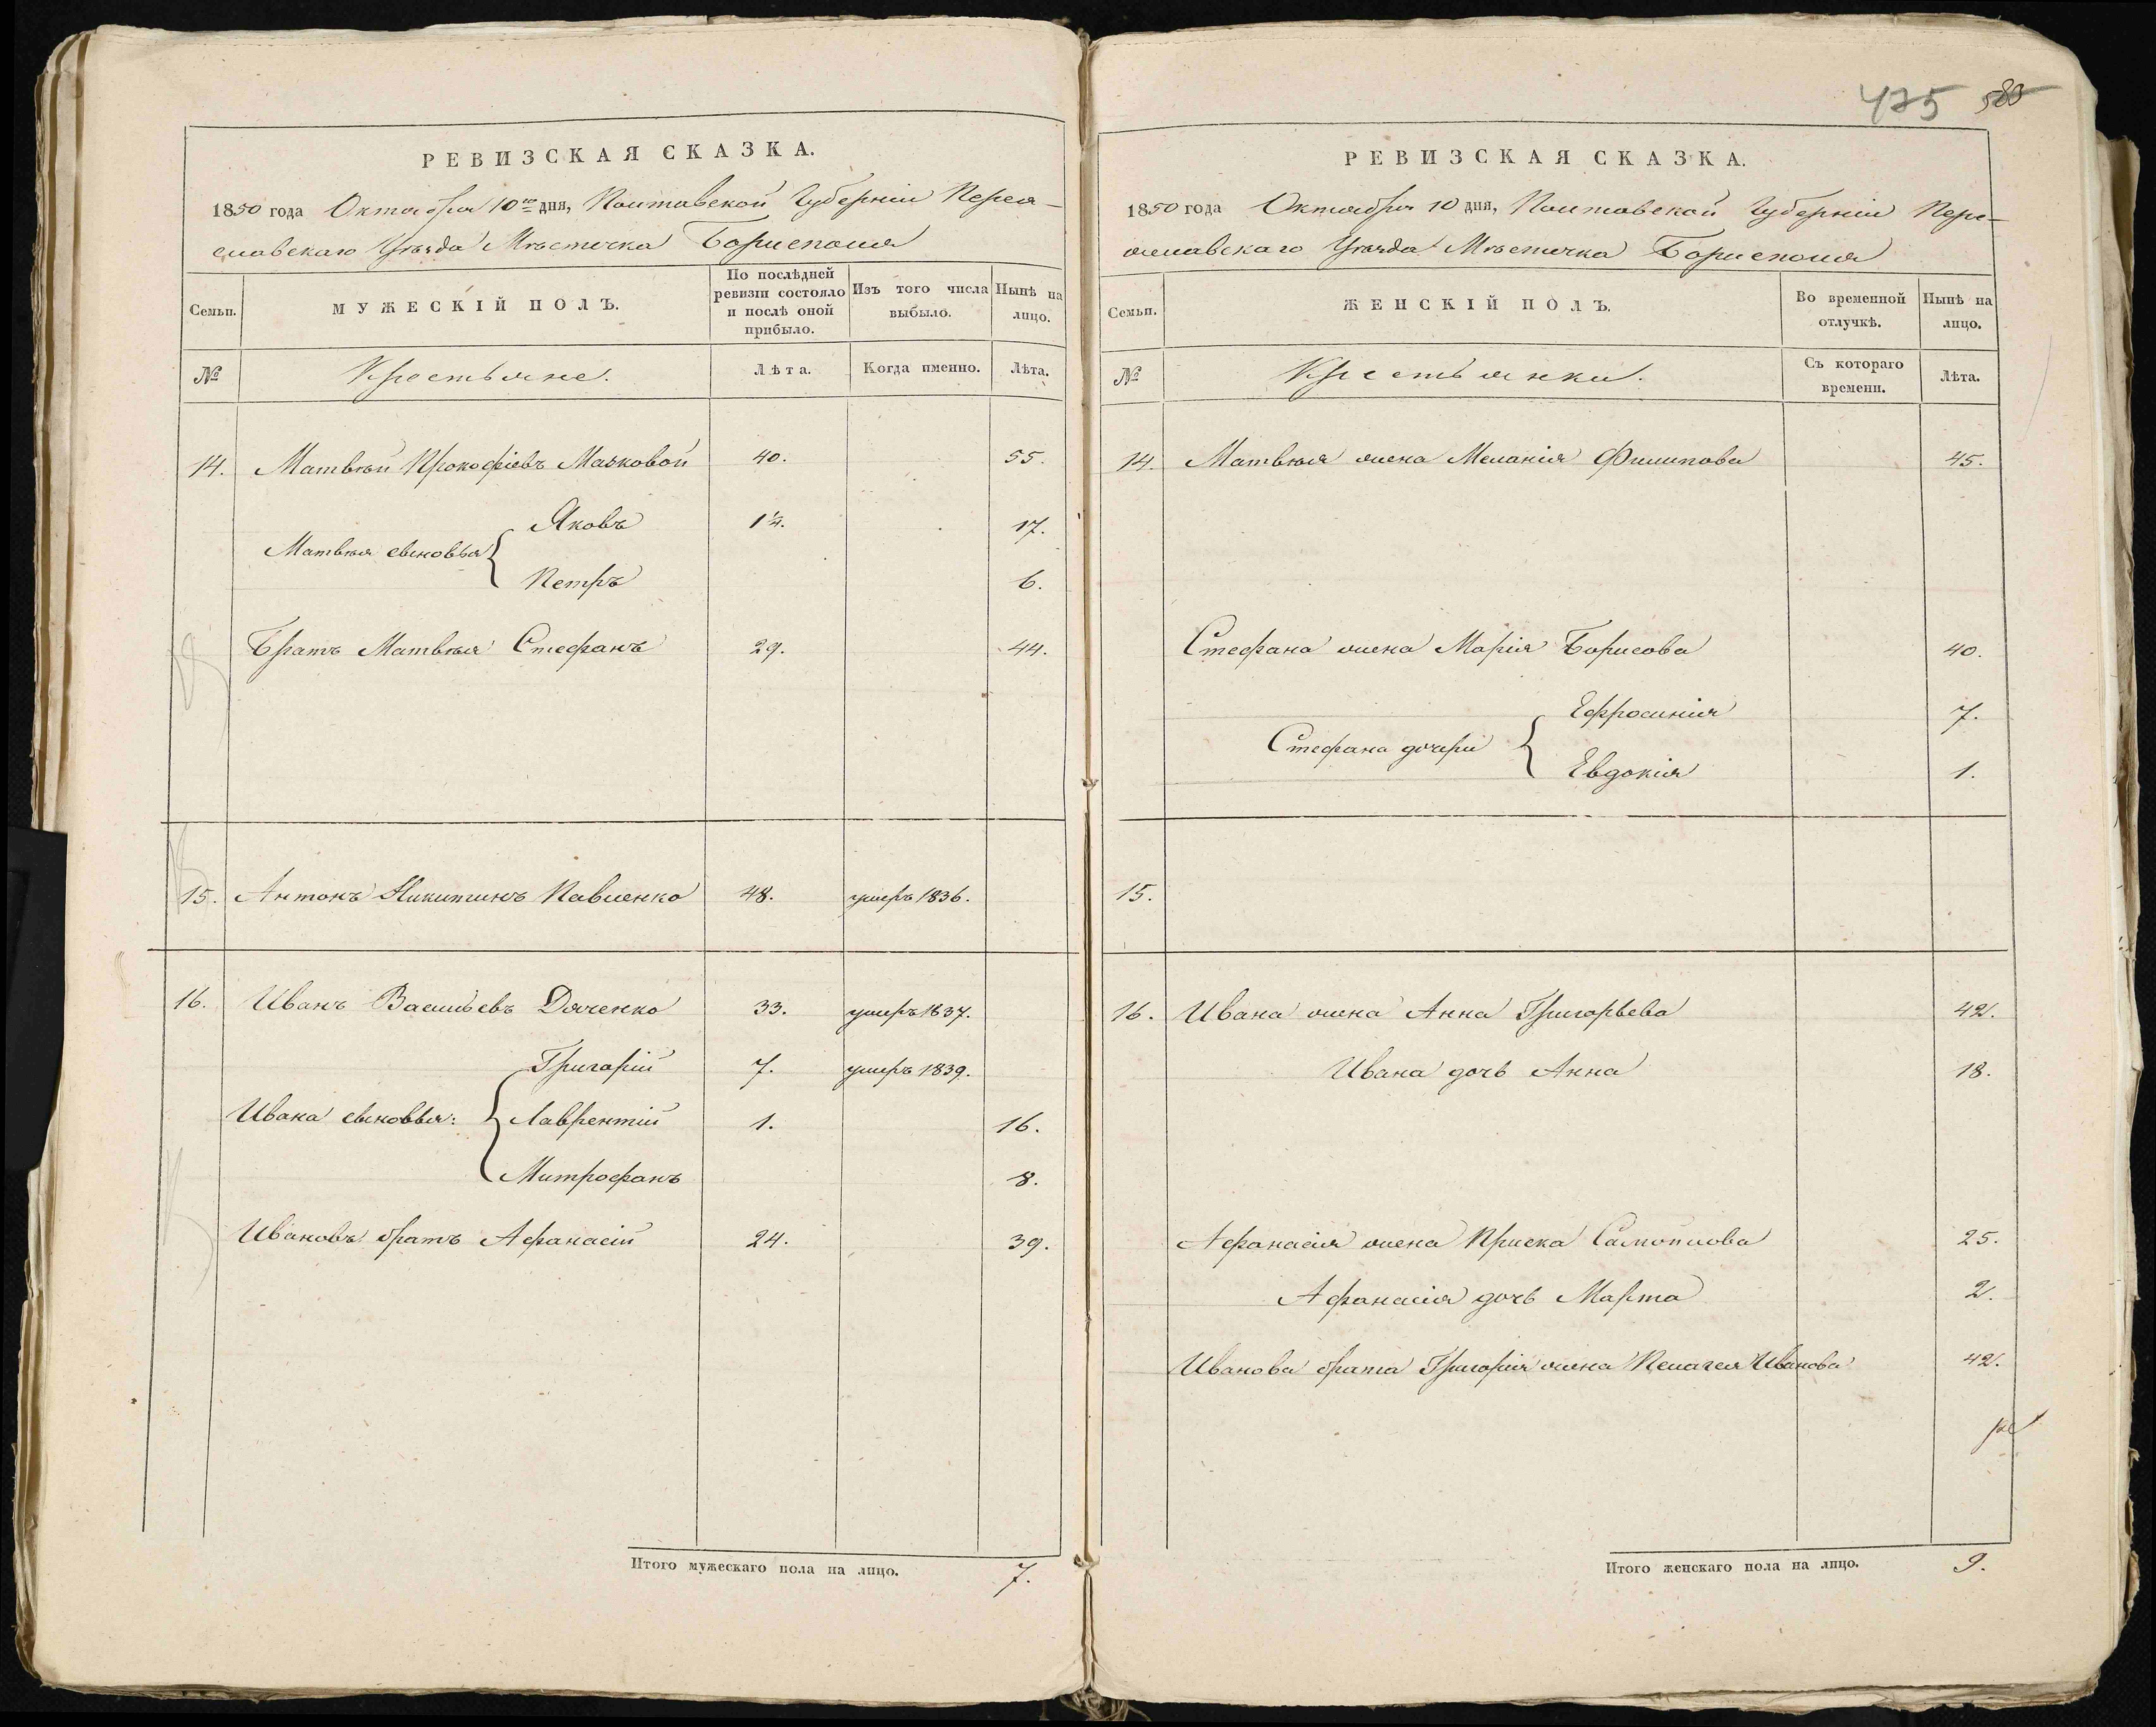 475 583
РЕВИЗСКАЯ СКАЗКА.
1850 года Октября 10го дня, Полтавской Губерніи Перея-
славскаго Уѣзда Мѣстечка Борисполя
Семьи. МУЖЕСКІЙ ПОЛЪ. По послѣдней ревизіи состояло и послѣ оной прибыло. Изъ того числа выбыло. Нынѣ на лицо.
№ Крестьяне. Лѣта. Когда именно. Лѣта.
14. Матвѣй Прокофіевъ Мачковой 40. 55.
Матвѣя сыновья { Яковъ 1¼. 17.
Петръ 6.
Братъ Матвѣя Стефанъ 29. 44.
15. Антонъ Никитинъ Павленко 48. умеръ 1836.
16. Иванъ Васильевъ Дяченко 33. умеръ 1837.
Григорій 7. умеръ 1839.
Ивана сыновья: { Лаврентій 1. 16.
Митрофанъ 8.
Ивановъ братъ Афанасій 24. 39.
Итого мужескаго пола на лицо. 7.
РЕВИЗСКАЯ СКАЗКА.
1850 года Октября 10 дня, Полтавской Губерніи Пере-
яславскаго Уѣзда Мѣстечка Борисполя
Семьи. ЖЕНСКІЙ ПОЛЪ. Во временной отлучкѣ. Нынѣ на лицо.
№ Крестьянки. Съ котораго времени. Лѣта.
14. Матвѣя жена Меланія Филипова 45.
Стефана жена Марія Борисова 40.
Стефана дочери { Ефросинія 7.
Евдокія 1.
15.
16. Ивана жена Анна Григорьева 42.
Ивана дочь Анна 18.
Афанасія жена Приска Самойлова 25.
Афанасія дочь Марта 2.
Иванова брата Григорія жена Пелагея Иванова 42.
Итого женскаго пола на лицо. 9.